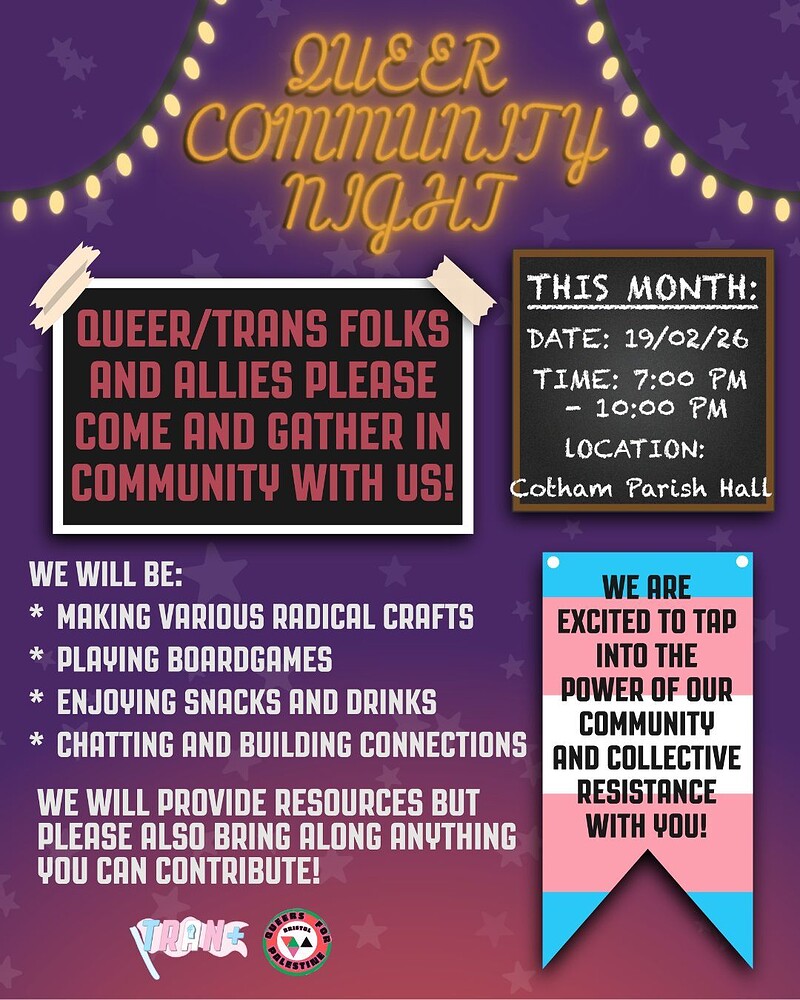 QUEER
COMMUNITY
NIGHT
QUEER/TRANS FOLKS
AND ALLIES PLEASE
COME AND GATHER IN
COMMUNITY WITH US!
THIS MONTH:
DATE: 19/02/26
TIME: 7:00 PM
- 10:00 PM
LOCATION:
Cotham Parish Hall
WE WILL BE:
* MAKING VARIOUS RADICAL CRAFTS
* PLAYING BOARDGAMES
* ENJOYING SNACKS AND DRINKS
* CHATTING AND BUILDING CONNECTIONS
WE WILL PROVIDE RESOURCES BUT
PLEASE ALSO BRING ALONG ANYTHING
YOU CAN CONTRIBUTE!
WE ARE
EXCITED TO TAP
INTO THE
POWER OF OUR
COMMUNITY
AND COLLECTIVE
RESISTANCE
WITH YOU!
TRAN+
QUEERS FOR
BRISTOL
PALESTINE